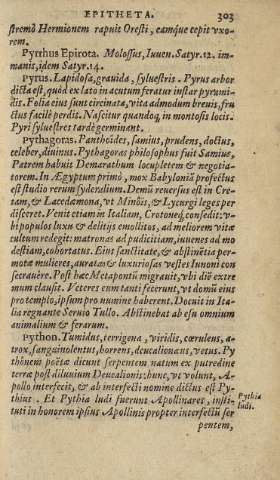 EPITHETA. 303
stremò Hermionem rapuit Oresti, eamque cepit vxo-
rem.
Pyrrhus Epirota. Molossus, Iuuen. Satyr. 12. im-
manis, idem Satyr. 14.
Pyrus. Lapidosa, grauida, syluestris. Pyrus arbor
dicta est, quòd ex lato in acutum feratur instar pyrami-
dis. Folia eius sunt circinata, vita admodum breuis, fru
ctus facilè perdis. Nascitur quandoq; in montosis locis.
Pyri syluestres tardè germinant.
Pythagoras. Panthoides, samius, prudens, doctus,
celeber, diuinus. Pythagoras philosophus fuit Samius,
Patrem habuit Demarathum locupletem & negotia-
torem. In Ægyptum primò, mox Babyloniā profectus
est studio rerum syderalium. Demū reuersus est in Cre-
tam, & Lacedæmona, vt Minois, & Lycurgi leges per
disceret. Venit etiam in Italiam, Crotoneq; consedit: v-
bi populos luxu & delitijs emollitos, ad meliorem vitæ
cultum redegit: matronas ad pudicitiam, iuuenes ad mo
destiam, cohortatus. Eius sanctitate, & abstinētia per-
motæ mulieres, auratas & luxuriosas vestes Iunoni con
secrauêre. Post hæc Metapontū migrauit, vbi diē extre
mum clausit. Veteres eum tanti fecerunt, vt domū eius
pro templo, ipsum pro numine haberent. Docuit in Ita-
lia regnante Seruio Tullo. Abstinebat ab esu omnium
animalium & ferarum.
Python. Tumidus, terrigena, viridis, cœruleus, a-
trox, sanguinolentus, horrens, deucalioneus, vetus. Py
thonem poëtæ dicunt serpentem natum ex putredine
terræ post diluuium Deucalionis: hunc, vt volunt, A-
pollo interfecit, & ab interfecti nomine dictus est Py-
thius. Et Pythia ludi fuerunt Apollinares, insti-
Pythia
ludi.
tuti in honorem ipsius Apollinis propter interfectū ser
pentem,